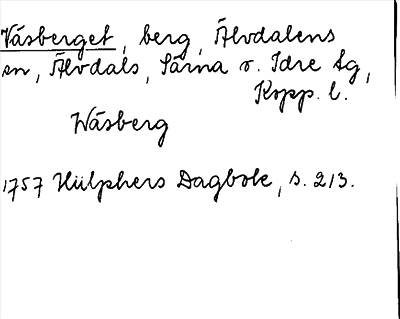 Våsberget, berg, Älvdalens
sn, Älvdals, Särna o. Idre tg,
Kopp. l.
Wåsberg
1757 Hülphers Dagbok, s. 213.